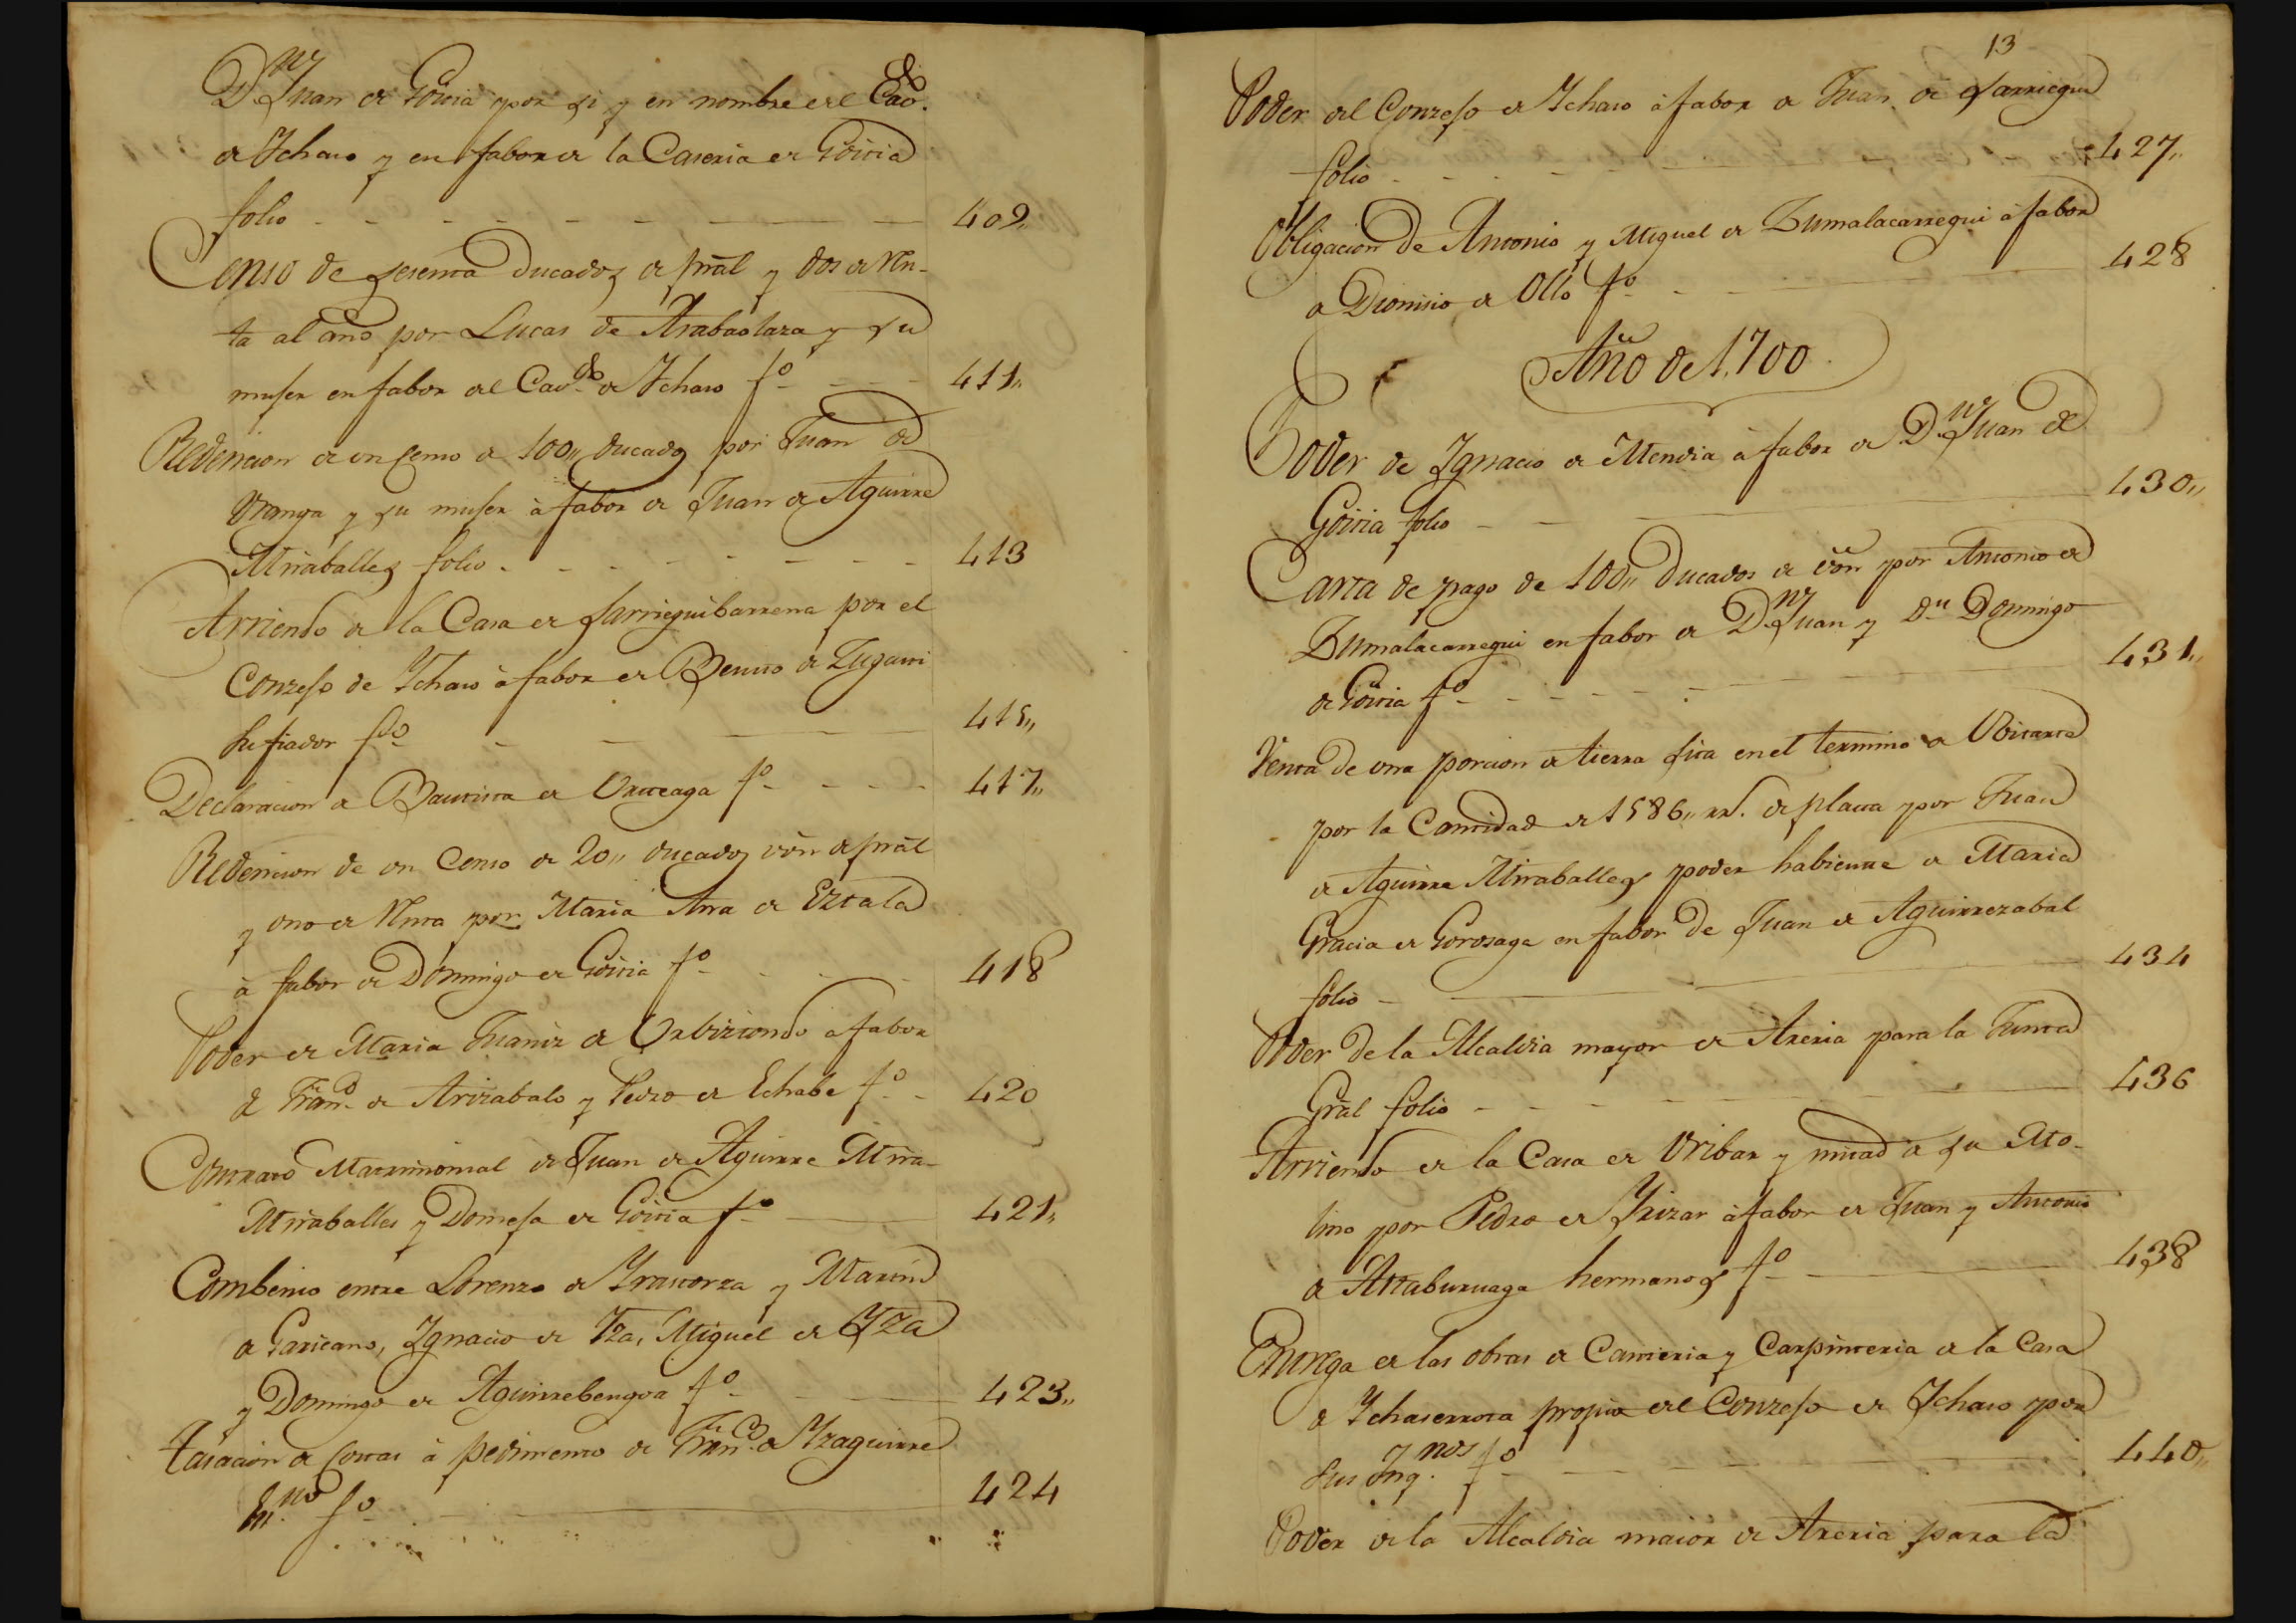 Dn Juan de Goiria por si y en nombre del Cavdo.
de Ychaso y en fabor de la Caseria de Goiria
folio - - - - - - - - 409,,
Censo de sesenta ducados de prãl y dos de Ren-
ta al año por Lucas de Arabaolaza y su
muger en fabor del Cavdo de Ychaso fo - - - 411,,
Redencion de un Censo de 100,, ducados por Juan de
Uranga y su muger à fabor de Juan de Aguirre
Miraballes folio - - - - - - 413
Arriendo de la Casa de Sarrieguibarrena por el
Conzejo de Ychaso à fabor de Benito de Zugarri
su fiador fo - - - - 415,,
Declaracion de Bautista de Urteaga fo - - - - 417,,
Redencion de un Censo de 20,, ducados võn de prãl
y uno de Renta por Maria Ana de Eztala
à fabor de Domingo de Goiria fo - - - 418
Poder de Maria Juaniz de Urbiztondo a fabor
de Franco de Arizabalo y Pedro de Echabe fo - - 420
Contrato Matrimonial de Juan de Aguirre Mira-
Miraballes y Domeja de Goiria fo - 421,,
Combenio entre Lorenzo de Yrastorza y Martin
de Garicano, Ygnacio de Yza, Miguel de Yza
y Domingo de Aguirrebengoa fo - - 423,,
tasacion de costas à pedimento de Franco de Yzaguirre
Esno fo - - 424
13
Poder del Conzejo de Ychaso à fabor de Juan de Sarriegui
folio - - - - - 427,,
Obligacion de Antonio y Miguel de Zumalacarregui à fabor
de Dionisio de Ollo fo - - - 428
Año de 1,700
Poder de Ygnacio de Mendia à fabor de Dn Juan de
Goiria folio - - - 430,,
Carta de pago de 100,, Ducados de võn por Antonio de
Zumalacarregui en fabor de Dn Juan y Dn Domingo
de Goiria fo - - - - - 431,,
Venta de una porcion de tierra sita en el termino de
por la Cantidad de 1586,, rrs. de plata por Juan
de Aguirre Miraballes poder habiente de Maria
Gracia de Gorosaga en fabor de Juan de Aguirrezabal
folio - - 434
Poder de la Alcaldia mayor de Areria para la Junta
Grãl folio - - - - - - 436
Arriendo de la Casa de Uribar y mitad de su Mo-
lino por Pedro de Yrizar à fabor de Juan y Antonio
de Attaburuaga hermanos fo - - 438
Entrega de las obras de Canteria y Carpinteria de la Casa
de Ychaserrota propia del Conzejo de Ychaso por
sus fo - - - - 440,,
Poder de la Alcaldia maior de Areria para la